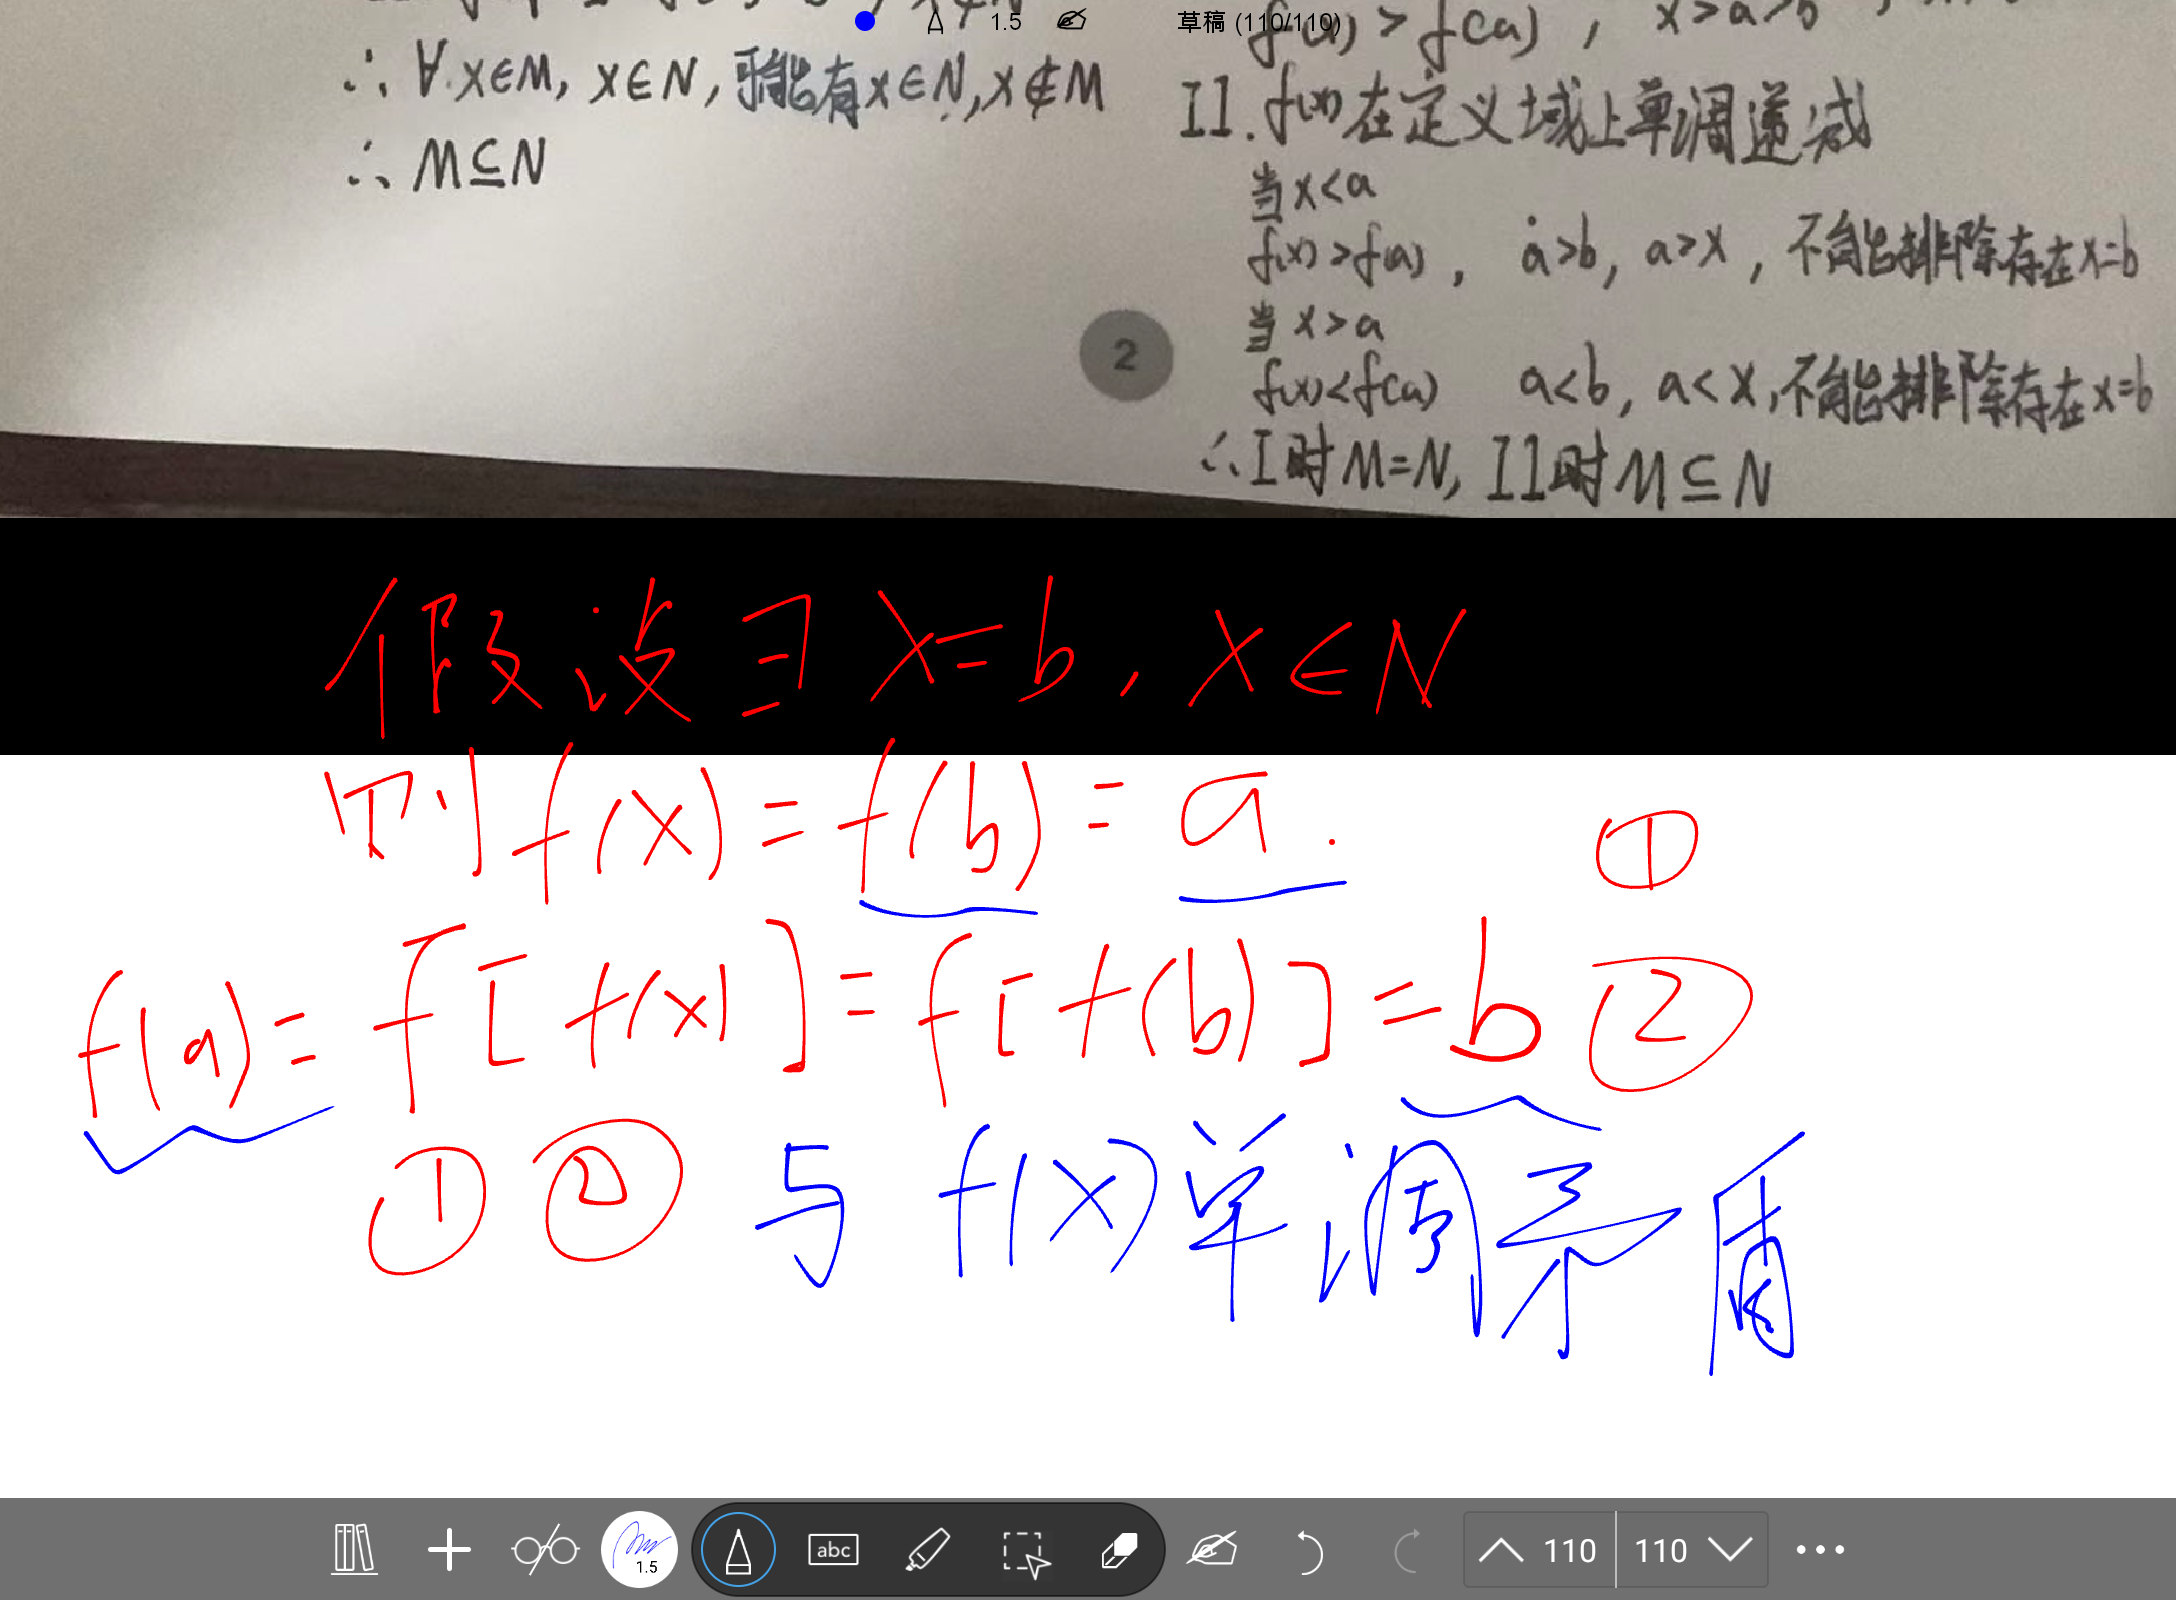 1.5 草稿 (110/110)
∴ ∀x∈M, x∈N, 可能有x∈N, x∉M
∴ M⊆N
f(x)>f(a), x>a>b
II. f(x)在定义域上单调递减
当x<a
f(x)>f(a), a>b, a>x, 不能排除存在x=b
当x>a
f(x)<f(a) a<b, a<x, 不能排除存在x=b
∴I时M=N, II时M⊆N
2
假设∃x=b, x∈N
则f(x)=f(b)=a. ①
f(a)=f[f(x)]=f[f(b)]=b ②
①②与f(x)单调矛盾
1.5 abc 110 110